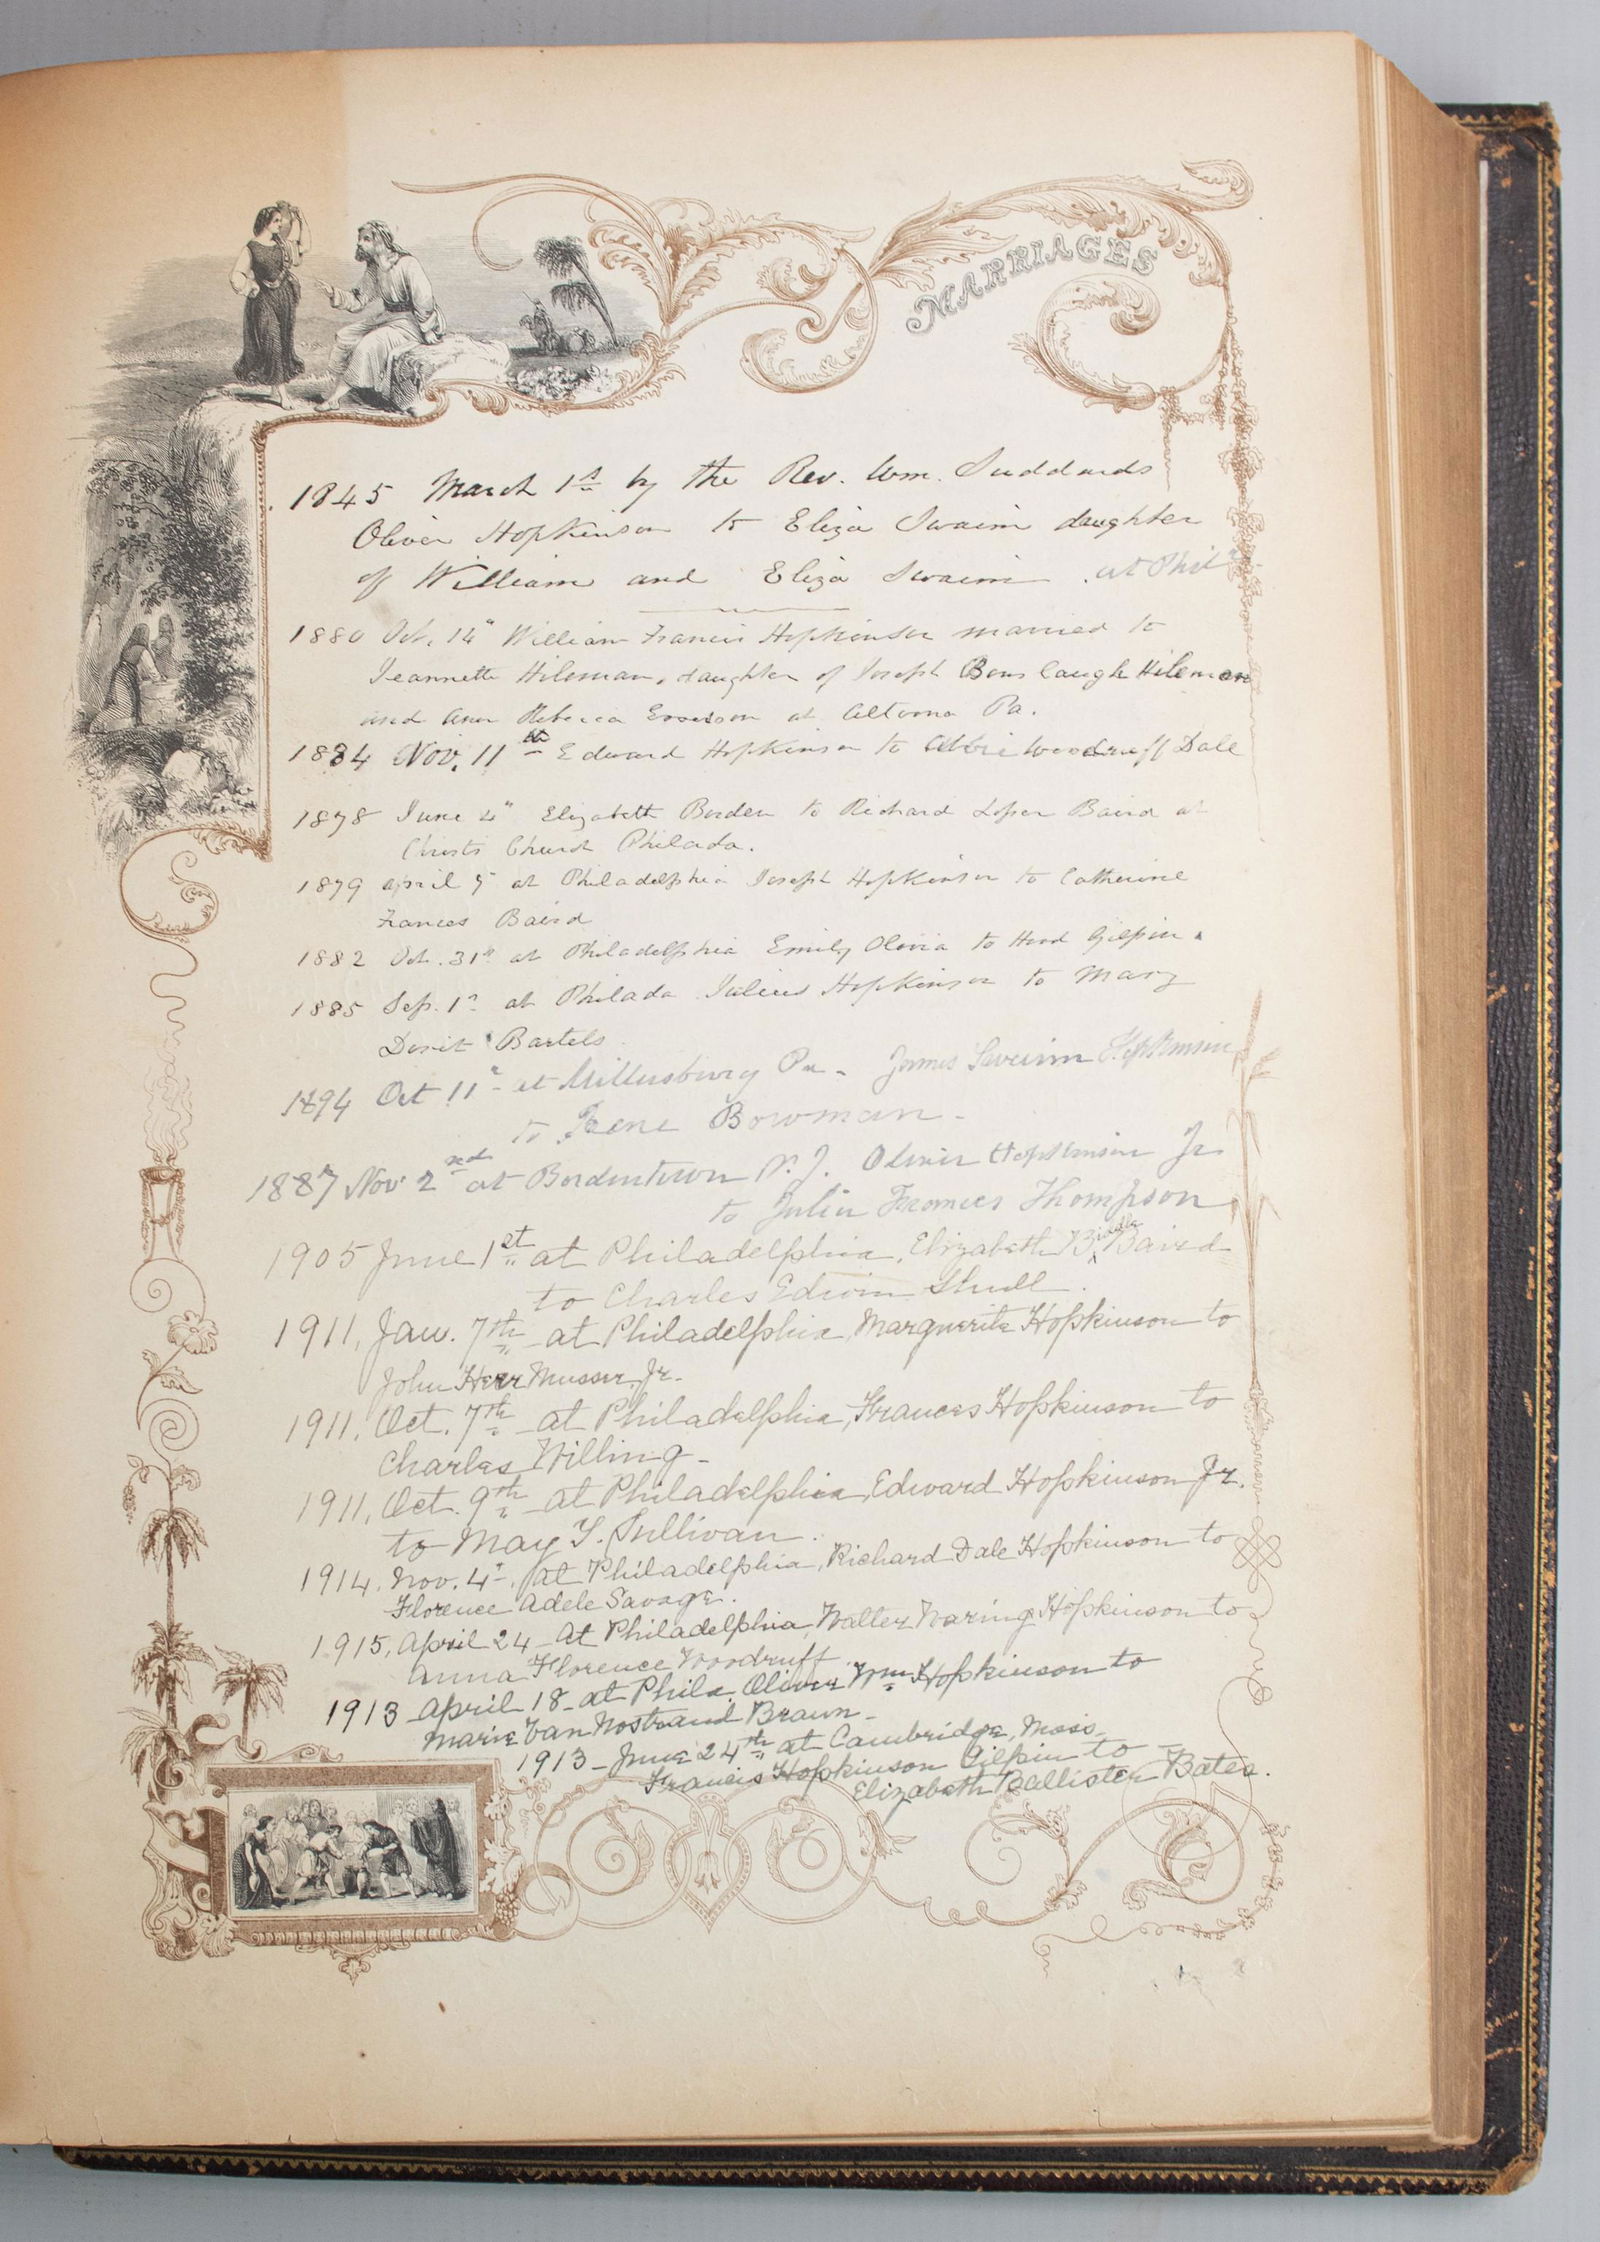 MARRIAGES
1845 March 1st by the Rev. Wm. Suddards
Oliver Hopkinson to Eliza Swaim daughter
of William and Eliza Swaim. at Phila
1880 Oct. 14" William Francis Hopkinson married to
Jeannette Hileman, daughter of Joseph Hileman
and Ann Rebecca at Altoona Pa.
1884 Nov. 11th Edward Hopkinson to Abbie Woodruff Dale
1878 June 4" Elizabeth Borden to Richard Loper Baird at
Christs Church Philada.
1879 April at Philadelphia Joseph Hopkinson to Catherine
Frances Baird
1882 Oct. 31" at Philadelphia Emily Olivia to Hood Gilpin.
1885 Sep. 1" at Philada Julius Hopkinson to Mary
Bartels.
1894 Oct 11" at Millersburg Pa - James Swaim Hopkinson
to Irene Bowman -
1887 Nov 2nd at Bordentown N. J. Oliver Hopkinson Jr
to Julia Frances Thompson
1905 June 1st at Philadelphia, Elizabeth Biddle Baird
to Charles Edwin Shull.
1911, Jan. 7th at Philadelphia Marguerite Hopkinson to
John Herr Musser, Jr.
1911, Oct. 7th at Philadelphia, Frances Hopkinson to
Charles Willing -
1911, Oct. 9th at Philadelphia, Edward Hopkinson Jr.
to May Y. Sullivan.
1914. Nov. 4", at Philadelphia, Richard Dale Hopkinson to
Florence Adele Savage.
1915, April 24 - at Philadelphia, Walter Waring Hopkinson to
Anna Florence Woodruff
1913 April 18 - at Phila. Oliver Wm Hopkinson to
Marie Van Nostrand Braun -
1913 - June 24th at Cambridge, Mass.
Francis Hopkinson Gilpin to -
Elizabeth Ballister Bates.